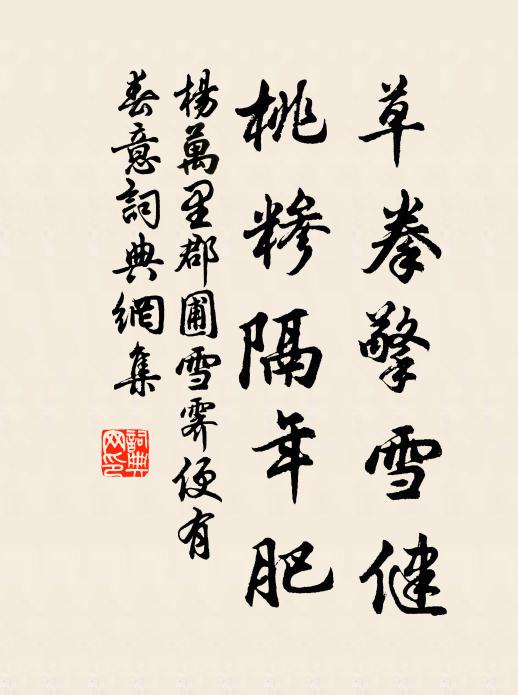 草拳擎雪健
桃糝隔年肥
楊萬里郡圃雪霽便有
春意詞典網集
詞典
网印